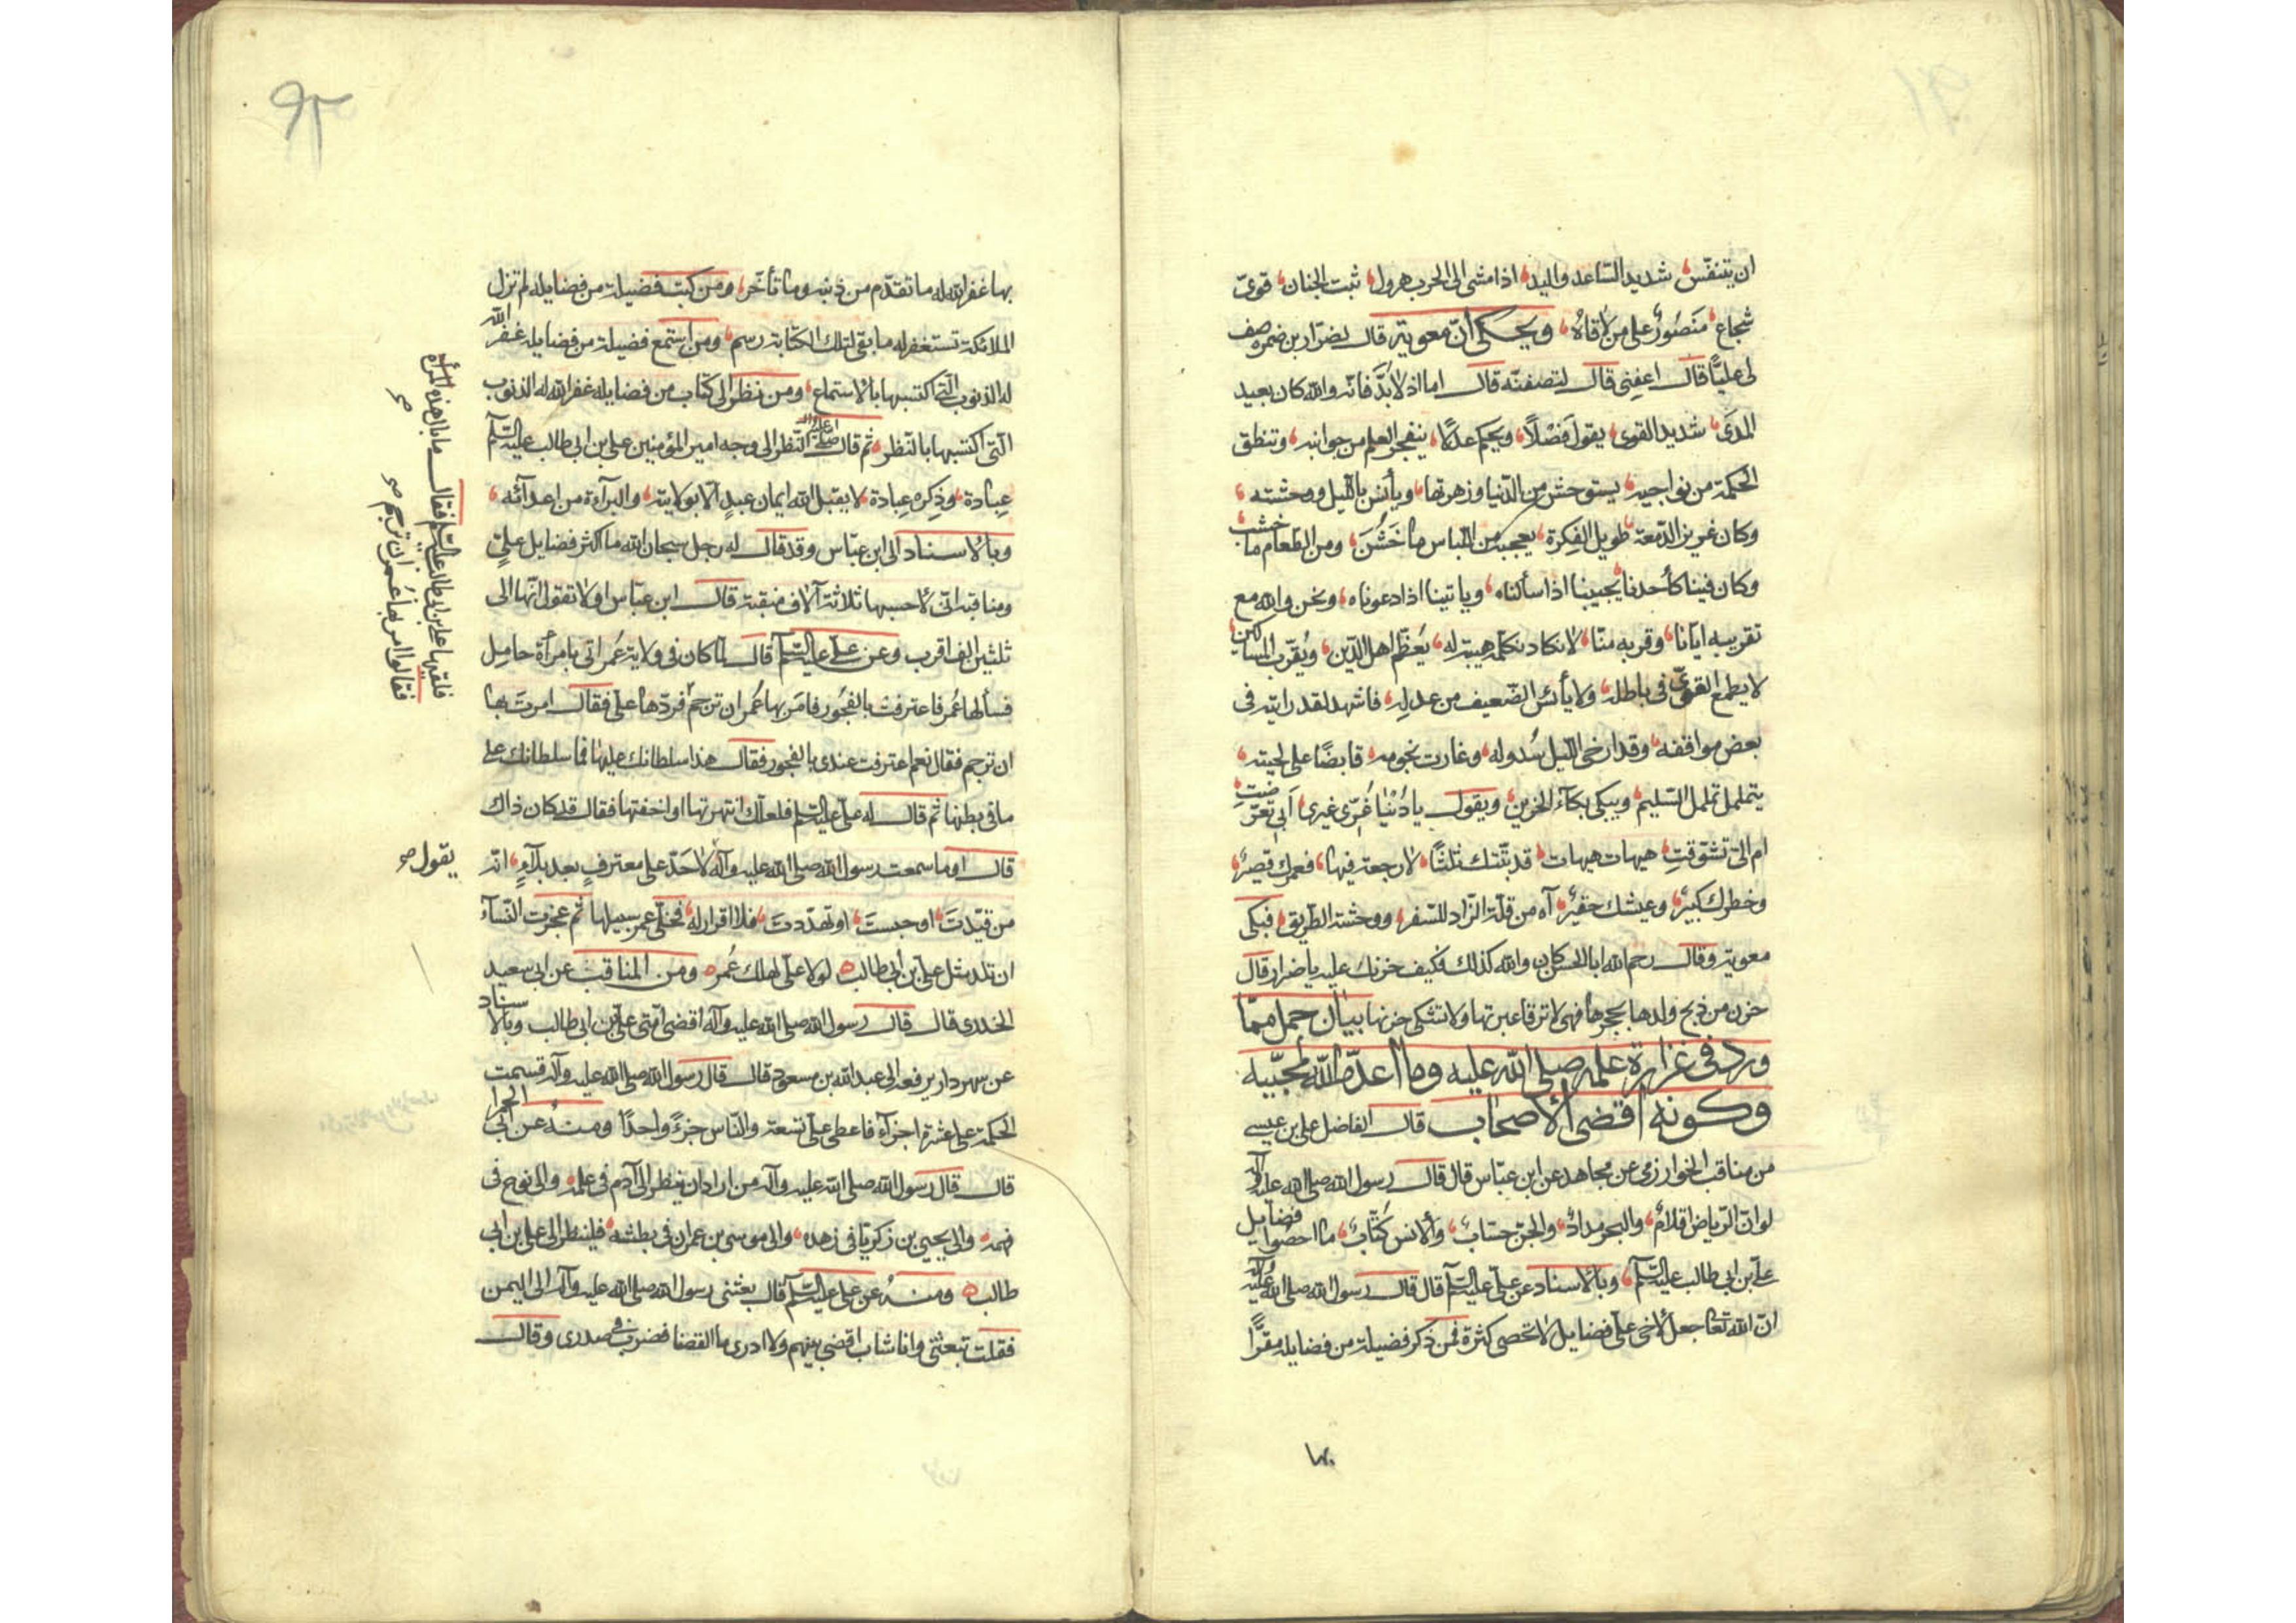 ان يتنفّس شديد السّاعد واليد اذا مشى الى الحرب هرول ثبت الجنان قوىّ
شجاع مَنصُورٌ على من لاقاهُ ويحكى انّ معوية قال لضرار بن ضمره صف
لى عليًّا قال اعفنى قال لتصفنّه قال اما اذ لا بدّ فانّه والله كان بعيد
المدَى شديد القوى يقول فَصْلًا ويحكم عدلًا ينفجر العلم من جوانبه وتنطق
الحكمة من نواجيه يستوحش من الدّنيا وزهرتها ويأنس باللّيل ووحشته
وكان غريز الدّمعة طويل الفِكرة يعجبه من اللّباس ما خَشُنَ ومن الطّعام ما خشب
وكان فينا كأحدنا يجيبنا اذا سألناه وياتينا اذا دعوناه ونحن والله مع
تقريبه ايّانا وقربه منّا لا نكاد نكلّمه هيبة له يُعَظّم اهل الدّين ويُقرّب المساكين
لا يطمع القوىّ فى باطله ولا يأئس الضّعيف من عدلِه فاشهد لقد رايته فى
بعض مواقفه وقد ارخى اللّيل سُدوله وغارت نجومه قابضًا على لحيته
يتململ تململ السّليم ويبكى بكآء الحزين ويقول يا دُنْيَا غُرّى غيرى أبى تعرّضتِ
ام الىّ تشوّقتِ هيهات هيهات قد بتّتك ثلثًا لا رجعة فيها فعمرك قصيرٌ
وخطرك كبيرٌ وعيشك حقيرٌ آه من قلّة الزّاد للسّفر ووحشة الطّريق فبكى
معوية وقال رحم الله ابا الحسن كان والله كذلك فكيف حزنك عليه يا ضرار قال
حزن من ذبح ولدها بحجرها فهى لا ترقا عبرتها ولا تشكى حزنها بيان جمل ممّا
ورد فى غزارة علمه صلى الله عليه وما اعدّه الله لمحبّيه
وكونه اقضى الأصحاب قال الفاضل على بن عيسى
من مناقب الخوارزمى عن مجاهد عن ابن عبّاس قال قال رسول الله صلى الله عليه وآله
لو انّ الرّياض اقلامٌ والبحر مدادٌ والجنّ حسّابٌ والانس كُتّابٌ ما احصُوا فضايل
علىّ بن ابى طالب عليه السّلم وبالاسناد عن علىّ عليه السّلم قال قال رسول الله صلى الله عليه وآله
انّ الله تعا جعل لاخى علىّ فضايل لا تحصى كثرة فمن ذكر فضيلة من فضايله مقرًّا
بها
بها غفر الله له ما تقدّم من ذنبه وما تأخّر ومن كتب فضيلة من فضايله لم تزل
الملائكة تستغفر له ما بقى لتلك الكتابة رسم ومن استمع فضيلة من فضايله غفر الله
له الذنوب الّتى اكتسبها بالاستماع ومن نظر الى كتاب من فضايله غفر الله له الذنوب
الّتى اكتسبها بالنّظر ثم قال صلى الله عليه وآله النّظر الى وجه امير المؤمنين على بن ابى طالب عليه السّلم
عِبادة وذِكره عِبادة لا يقبل الله ايمان عبدٍ الّا بولايته والبرآءة من اعدآئه
وبالاسناد الى ابن عبّاس وقد قال له رجل سبحان الله ما اكثر فضايل علىّ
ومناقبه انّى لاحسبها ثلاثة آلاف منقبة قال ابن عبّاس اولا تقول انّها الى
ثلثين الف اقرب وعن علىّ عليه السّلم قال لمّا كان فى ولاية عُمر اتى بامرأة حامل
فسألها عُمر فاعترفت بالفجور فامر بها عُمر ان ترجم فردّها علىّ فقال امرت بها
ان ترجم فقال نعم اعترفت عندى بالفجور فقال هذا سلطانك عليها فما سلطانك على
ما فى بطنها ثم قال له علىّ عليه السّلم فلعلّك انتهرتها او اخفتها فقال قد كان ذاك
قال اوما سمعت رسول الله صلى الله عليه وآله لا حَدّ على معترفٍ بعد بلآءٍ انّه
من قيّدتَ او حبستَ او تهدّدتَ فلا اقرار له فخلّى عمر سبيلها ثم عجزت النّسآء
ان تلد مثل علىّ بن ابى طالب لولا علىّ لهلك عُمر ومن المناقب عن ابى سعيد
الخدرى قال قال رسول الله صلى الله عليه وآله اقضى امّتى علىّ بن ابى طالب وبالاسناد
عن شهردار يرفعه الى عبد الله بن مسعود قال قال رسول الله صلى الله عليه وآله قسمت
الحكمة على عشرة اجزآء فاعطى علىّ تسعة والنّاس جزءً واحدًا ومنه عن ابى الحمرا
قال قال رسول الله صلى الله عليه وآله من اراد ان ينظر الى آدم فى علمه والى نوح فى
فهمه والى يحيى بن زكريّا فى زهده والى موسى بن عمران فى بطشه فلينظر الى على بن ابى
طالب ومنه عن على عليه السّلم قال بعثنى رسول الله صلى الله عليه وآله الى اليمن
فقلت تبعثنى وانا شاب اقضى بينهم ولا ادرى ما القضا فضرب فى صدرى وقال
فلقيها على بن ابى طالب عليه السّلم فقال ما بال هذه المرأة
فقالوا امر بها عُمر ان ترجم صح
يقول صح
۹۲